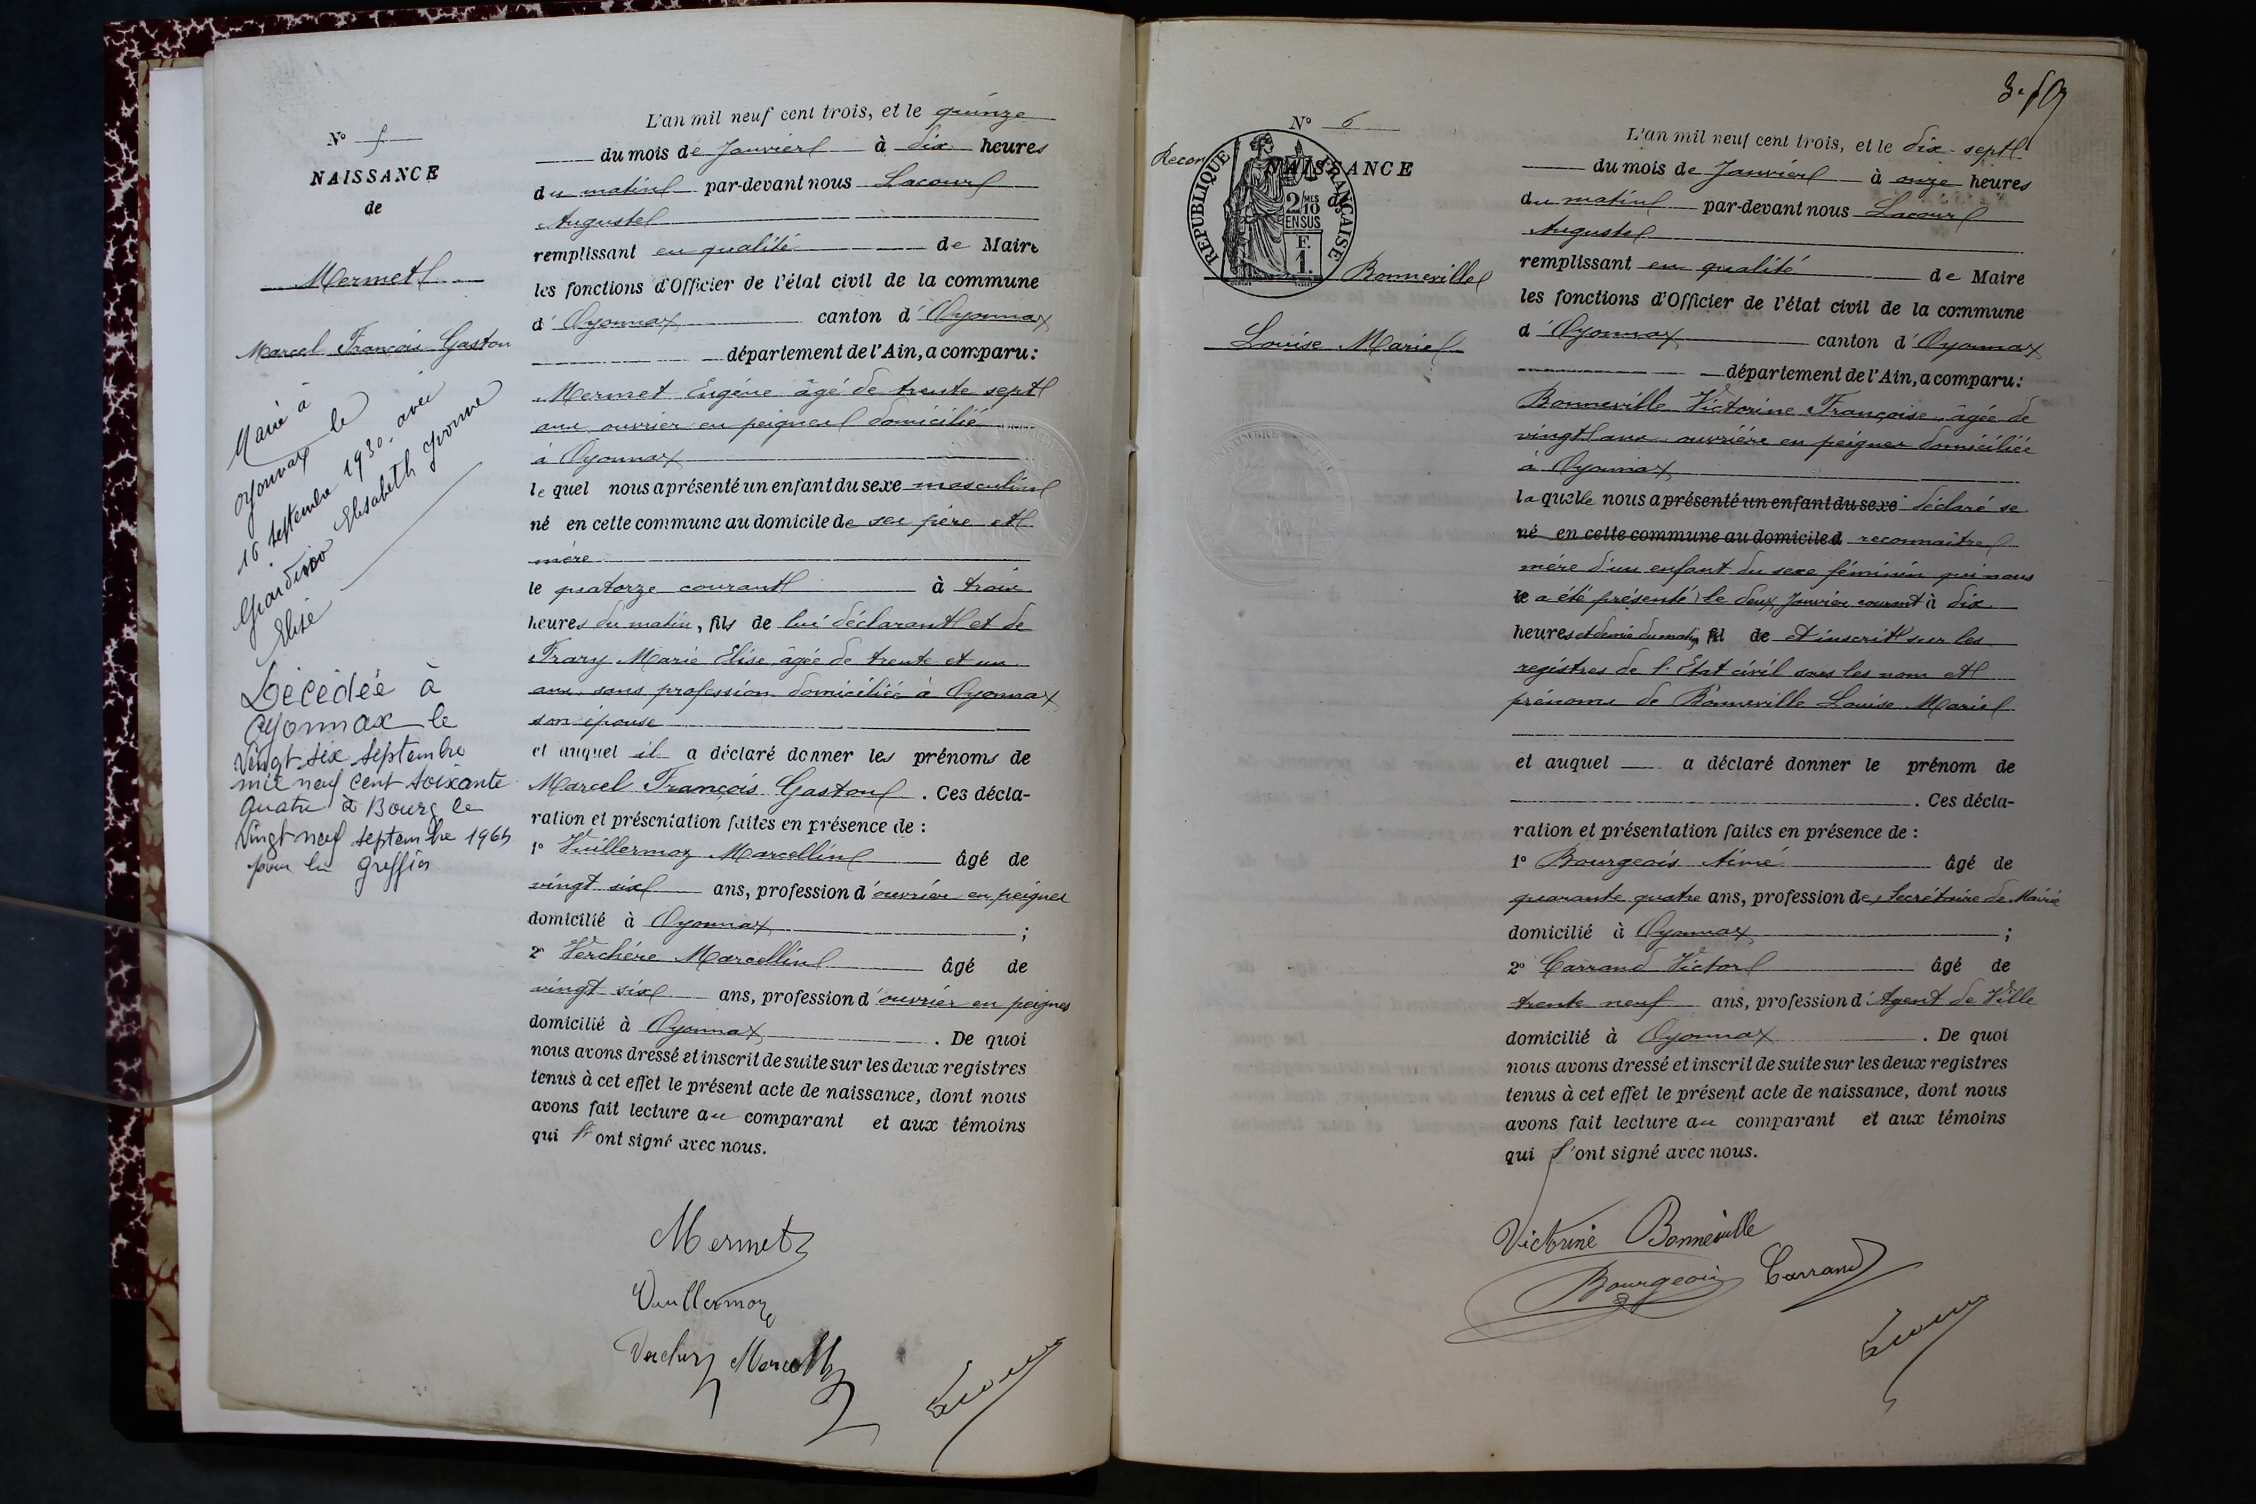 N° 5
NAISSANCE
de
Mermet
Marcel François Gaston
Marié à
Oyonnax le
16 septembre 1930 avec
Elisabeth Yvonne
Elise
Décédée à
Oyonnax le
Vingt six septembre
mil neuf cent soixante
quatre à Bourg le
Vingt neuf septembre 1964
pour le Greffier
L'an mil neuf cent trois, et le quinze
du mois de Janvier à dix heures
du matin par-devant nous Lacour
Auguste
remplissant en qualité de Maire
les fonctions d'Officier de l'état civil de la commune
d'Oyonnax canton d'Oyonnax
département de l'Ain, a comparu:
Mermet Eugène âgé de trente sept
ans ouvrier en peignes domicilié
à Oyonnax
lequel nous a présenté un enfant du sexe masculin
né en cette commune au domicile de ses père et
mère
le quatorze courant à trois
heures du matin, fils de lui déclarant et de
Frary Marie Elise âgée de trente et un
ans sans profession domiciliée à Oyonnax
son épouse
et auquel il a déclaré donner les prénoms de
Marcel François Gaston. Ces décla-
ration et présentation faites en présence de:
1° Vuillermoz Marcellin âgé de
vingt six ans, profession d'ouvrier en peignes
domicilié à Oyonnax;
2° Verchère Marcellin âgé de
vingt six ans, profession d'ouvrier en peignes
domicilié à Oyonnax. De quoi
nous avons dressé et inscrit de suite sur les deux registres
tenus à cet effet le présent acte de naissance, dont nous
avons fait lecture au comparant et aux témoins
qui l'ont signé avec nous.
Mermet
Vuillermoz
Verchère Marcellin
Lacour
N° 6
Recon NAISSANCE
de
REPUBLIQUE FRANÇAISE
2 MES
10
EN SUS
F.
1.
Bonneville
Louise Marie
L'an mil neuf cent trois, et le dix-sept
du mois de Janvier à onze heures
du matin par-devant nous Lacour
Auguste
remplissant en qualité de Maire
les fonctions d'Officier de l'état civil de la commune
d'Oyonnax canton d'Oyonnax
département de l'Ain, a comparu:
Bonneville Victorine Françoise âgée de
vingt ans ouvrière en peignes domiciliée
à Oyonnax
laquelle nous a présenté un enfant du sexe déclaré se
né en cette commune au domicile d reconnaître
mère d'un enfant du sexe féminin qui nous
a été présenté le deux Janvier courant à dix
heures et demie du matin, fil de et inscrit sur les
registres de l'Etat civil sous les nom et
prénoms de Bonneville Louise Marie
et auquel a déclaré donner le prénom de
. Ces décla-
ration et présentation faites en présence de:
1° Bourgeois Aimé âgé de
quarante quatre ans, profession de Secrétaire de Mairie
domicilié à Oyonnax;
2° Carrand Victor âgé de
trente neuf ans, profession d'Agent de Ville
domicilié à Oyonnax. De quoi
nous avons dressé et inscrit de suite sur les deux registres
tenus à cet effet le présent acte de naissance, dont nous
avons fait lecture au comparant et aux témoins
qui l'ont signé avec nous.
Victorine Bonneville
Bourgeois Carrand
Lacour